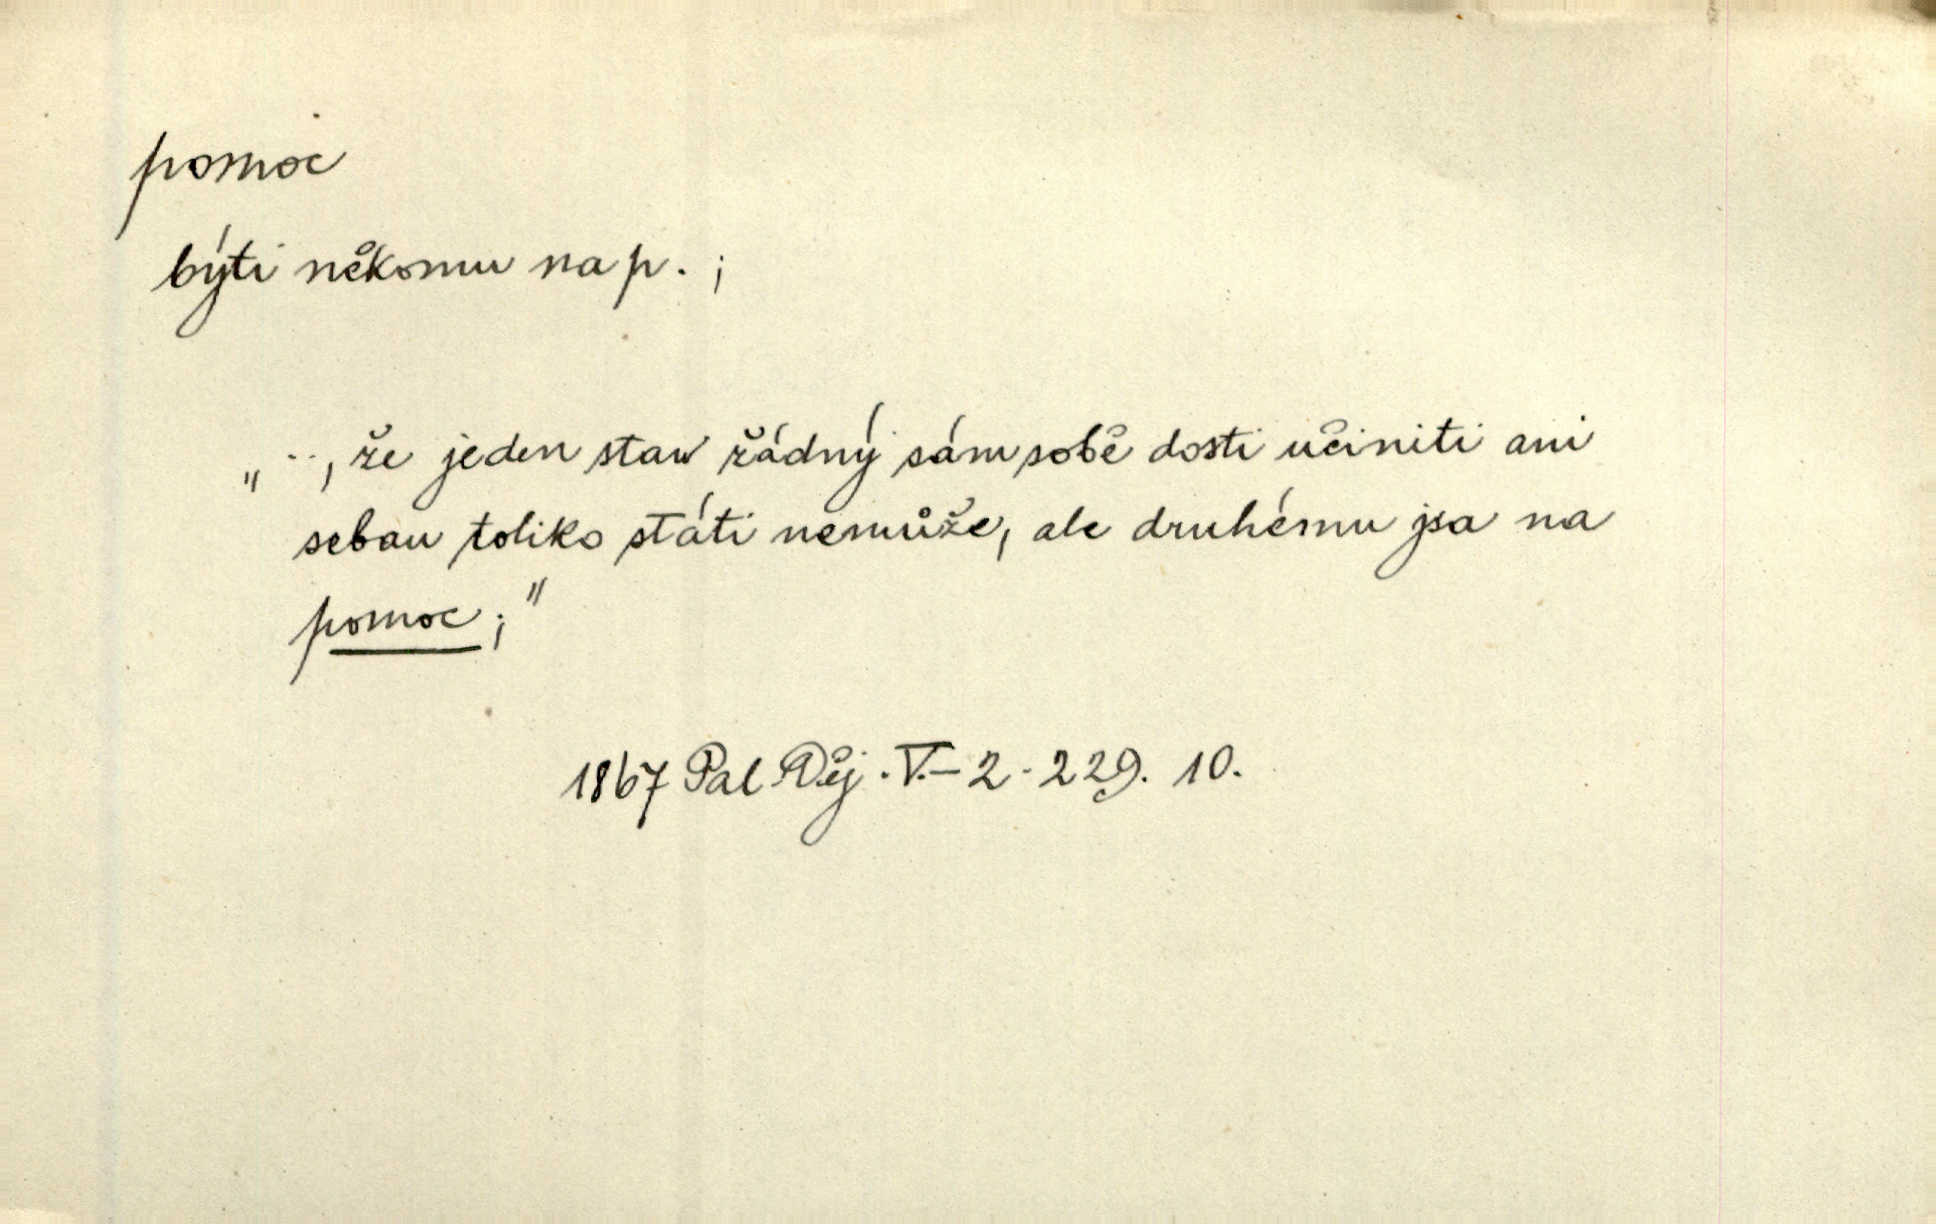 pomoc
býti někomu na p. ;
„ .., že jeden staw řádný sám sobě dosti učiniti ani
sebau toliko státi nemůže, ale druhému jsa na
pomoc ; "
1867 Pal Děj. V.–2. 229. 10.